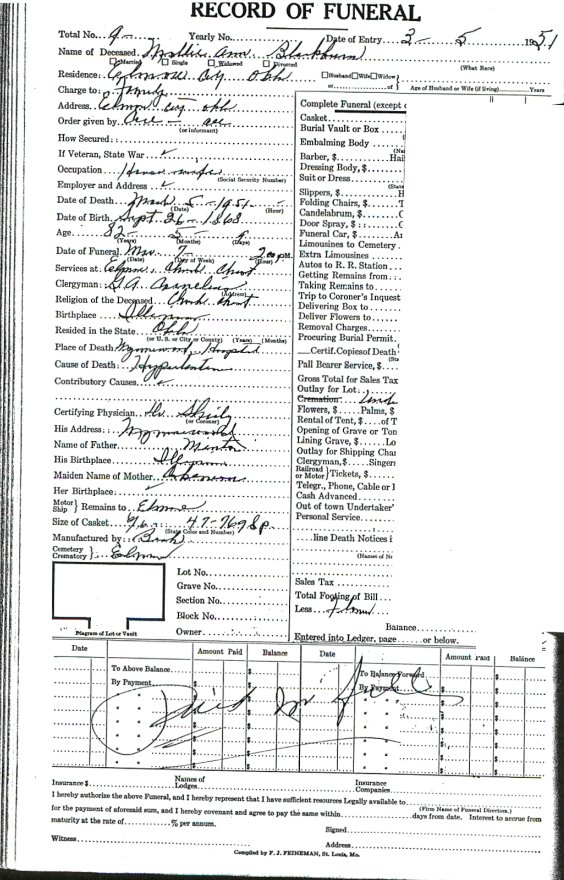 RECORD OF FUNERAL
Total No. 9 Yearly No. Date of Entry 3 - 5 1951
Name of Deceased Mollie Ann Blackburn
Married Single Widowed Divorced (What Rate)
Residence: City Okla Husband Wife Widow
or of Age of Husband or Wife (if living) Years
Charge to: Family
Address City Okla
Order given by
(or informant)
How Secured:
If Veteran, State War ✓
Occupation House wife
(Social Security Number)
Employer and Address ✓
Date of Death March 5 - 1951
(Date) (Hour)
Date of Birth Sept. 26 - 1868
Age 82 - 5 - 9
(Years) (Months) (Days)
Date of Funeral Mar 7 - 2 00 PM
(Date) (Day of Week) (Hour)
Services at Church Christ
Clergyman: (Address)
Religion of the Deceased Church Christ
Birthplace
Resided in the State Okla
(or U. S. or City or County) (Years) (Months)
Place of Death Wynnewood Hospital
Cause of Death Hypertention
Contributory Causes ✓
Certifying Physician Dr. Shirly
(or Coroner)
His Address Wynnewood
Name of Father
His Birthplace
Maiden Name of Mother
Her Birthplace ✓
Motor Ship } Remains to Elmore
Size of Casket 4 7 - 769 Sp
(State Color and Number)
Manufactured by
Cemetery Crematory } Elmore
Diagram of Lot or Vault
Lot No.
Grave No.
Section No.
Block No.
Owner
Complete Funeral (except
Casket
Burial Vault or Box
Embalming Body
Barber, $ Hai
Dressing Body, $
Suit or Dress
Slippers, $ H
Folding Chairs, $ T
Candelabrum, $
Door Spray, $
Funeral Car, $
Limousines to Cemetery
Extra Limousines
Autos to R. R. Station
Getting Remains from
Taking Remains to
Trip to Coroner's Inquest
Delivering Box to
Deliver Flowers to
Removal Charges
Procuring Burial Permit
Certif. Copies of Death
Pall Bearer Service, $
Gross Total for Sales Tax
Outlay for Lot
Cremation
Flowers, $ Palms, $
Rental of Tent, $ of T
Opening of Grave or Tom
Lining Grave, $ Lo
Outlay for Shipping Char
Clergyman, $ Singers
Railroad or Motor } Tickets, $
Telegr., Phone, Cable or
Cash Advanced
Out of town Undertaker'
Personal Service
line Death Notices i
(Names of Ne
Sales Tax
Total Footing of Bill
Less
Balance
Entered into Ledger, page or below.
Date Amount Paid Balance Date Amount Paid Balance
To Above Balance $ $ To Balance Forward $ $
By Payment By Payment
Paid in full
Insurance $ Names of Lodges Insurance Companies
I hereby authorize the above Funeral, and I hereby represent that I have sufficient resources Legally available to
(Firm Name of Funeral Directors.)
for the payment of aforesaid sum, and I hereby covenant and agree to pay the same within days from date. Interest to accrue from
maturity at the rate of % per annum.
Signed
Witness Address
Compiled by F. J. FEINEMAN, St. Louis, Mo.